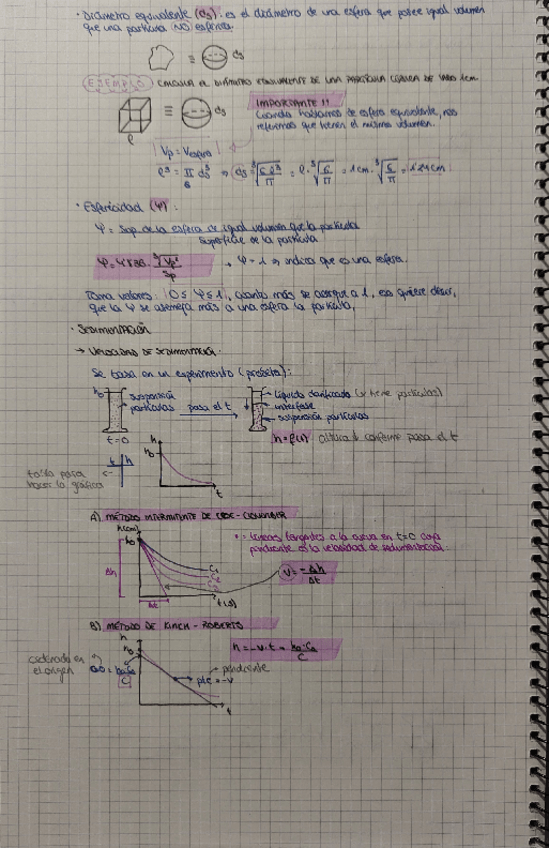 · Diámetro equivalente (ds): es el diámetro de una esfera que posee igual volumen
que una partícula NO esférica.
≡ ds
EJEMPLO CALCULA EL DIÁMETRO EQUIVALENTE DE UNA PARTÍCULA CÚBICA DE LADO 1cm.
≡ ds
l
IMPORTANTE!!
Cuando hablamos de esfera equivalente, nos
referimos que tienen el mismo volumen.
Vp = Vesfera
l³ = π/6 ds³ → ds = ∛(6·l³/π) = l·∛(6/π) = 1cm·∛(6/π) = 1'24cm
· Esfericidad (Ψ):
Ψ = Sup. de la esfera de igual volumen que la partícula
superficie de la partícula
Ψ = 4'836 · ∛Vp² / Sp → Ψ = 1 → indica que es una esfera.
Toma valores: 0 ≤ Ψ ≤ 1, cuanto más se acerque a 1, eso quiere decir,
que la Ψ se asemeja más a una esfera la partícula.
· SEDIMENTACIÓN
→ VELOCIDAD DE SEDIMENTACIÓN.
Se basa en un experimento (probeta):
h₀ suspensión
partículas pasa el t
líquido clarificado (no tiene partículas)
interfase
suspensión partículas
t=0
h = f(t) altura ↓ conforme pasa el t
t | h
tabla para
hacer la gráfica
h
h₀
t
A) MÉTODO INTERMITENTE DE COE-CLEVENGER
h(cm)
h₀
Δh
Δt
C₁
C₂
t(s)
líneas tangentes a la curva en t=0 cuya
pendiente es la velocidad de sedimentación.
v = -Δh/Δt
B) MÉTODO DE KINCH-ROBERTS
h
h₀
h = -v·t + h₀·C₀/C
ordenada en
el origen
O.O = h₀·C₀/C
pendiente
pte = -v
t